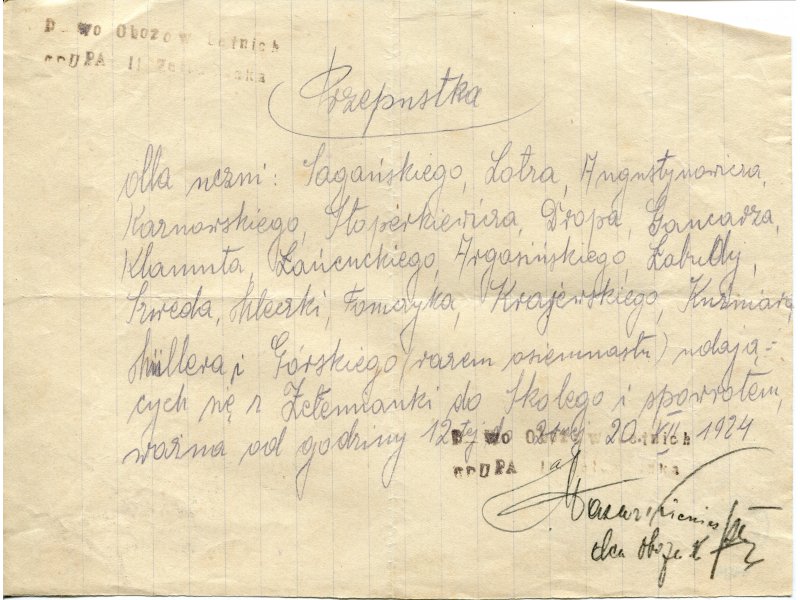 D wo Obozow Letnich
GRUPA II Ze
Przepustka
dla uczni: Sagańskiego, Lotza, Augustynowicza,
Karnowskiego, Stoperkiewicza, Dropa, Gancarza,
Klamuta, Łańcuckiego, Argasińskiego, Łabudy,
Szweda, Mleczki, Tomczyka, Krajewskiego, Kuźniara,
Müllera, i Górskiego (razem osiemnastu) udają=
cych się z Zełemianki do Skolego i spowrotem,
ważna od godziny 12tej do 20 VII 1924
D wo Obozow Letnich
GRUPA
dca obozu